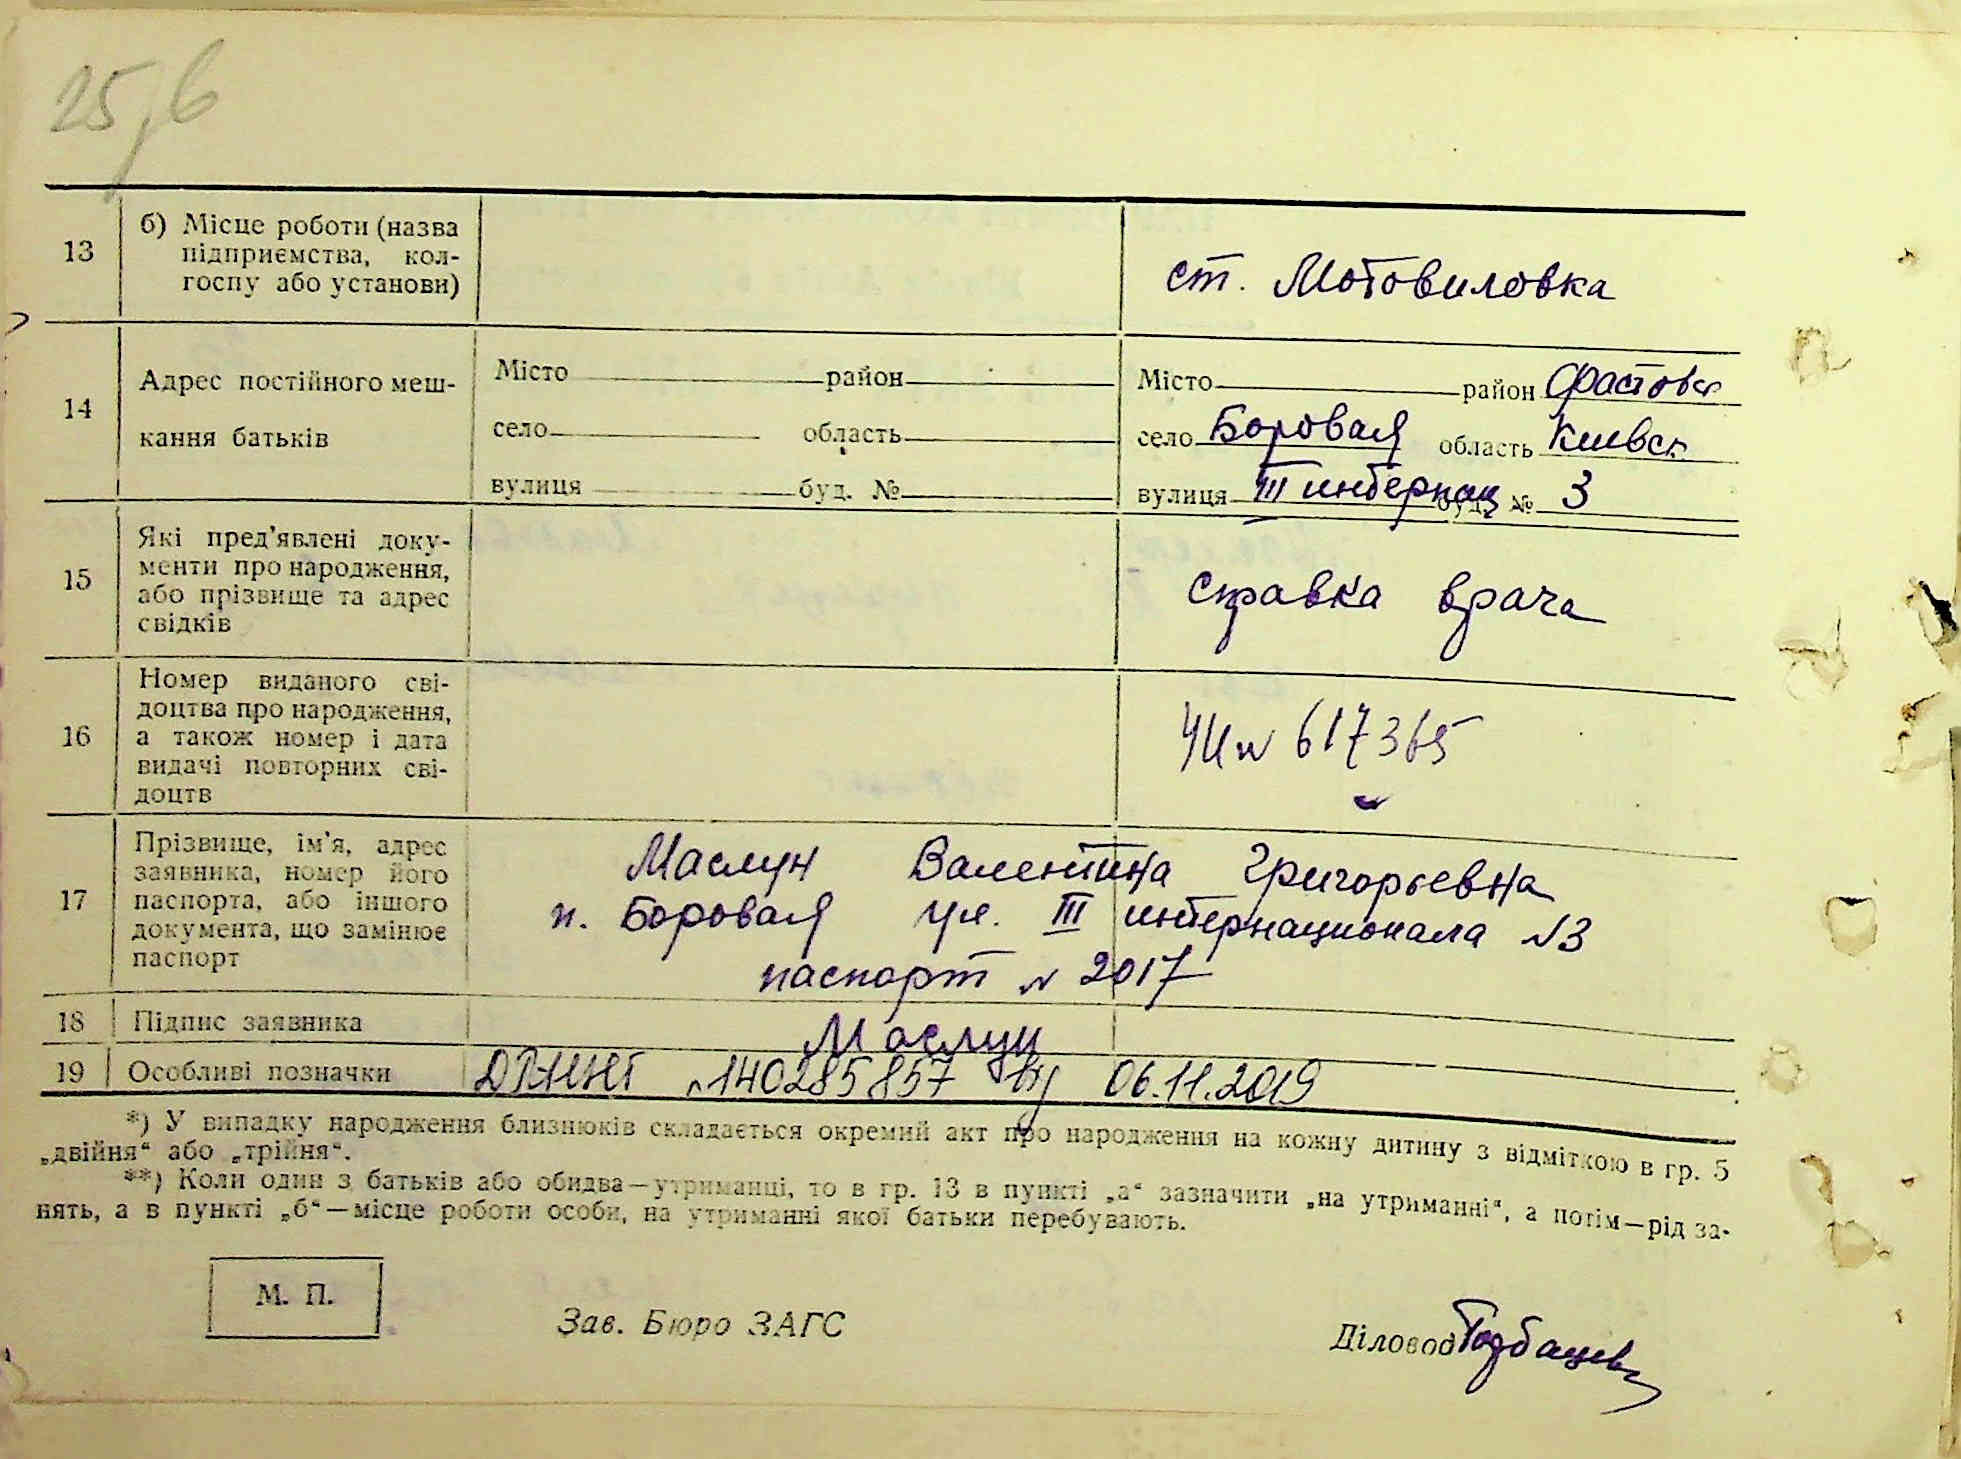 25
13 б) Місце роботи (назва
підприємства, кол-
госпу або установи)
ст. Мотовиловка
14 Адрес постійного меш-
кання батьків
Місто район Місто район Фастовск
село область село Боровая область Киевск
вулиця буд. № вулиця III интернац буд. № 3
15 Які пред'явлені доку-
менти про народження,
або прізвище та адрес
свідків
справка врача
16 Номер виданого сві-
доцтва про народження,
а також номер і дата
видачі повторних сві-
доцтв
№ 617365
17 Прізвище, ім'я, адрес
заявника, номер його
паспорта, або іншого
документа, що замінює
паспорт
Маслун Валентина Григорьевна
п. Боровая ул. III интернационала №3
паспорт № 2017
18 Підпис заявника Маслун
19 Особливі позначки №140285857 від 06.11.2019
*) У випадку народження близнюків складається окремий акт про народження на кожну дитину з відміткою в гр. 5
„двійня“ або „трійня“.
**) Коли один з батьків або обидва—утриманці, то в гр. 13 в пункті „а“ зазначити „на утриманні“, а потім—рід за-
нять, а в пункті „б“—місце роботи особи, на утриманні якої батьки перебувають.
М. П.
Зав. Бюро ЗАГС
Діловод